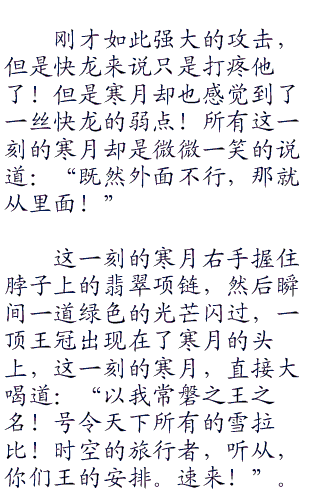 刚才如此强大的攻击，
但是快龙来说只是打疼他
了！但是寒月却也感觉到了
一丝快龙的弱点！所有这一
刻的寒月却是微微一笑的说
道：“既然外面不行，那就
从里面！”
这一刻的寒月右手握住
脖子上的翡翠项链，然后瞬
间一道绿色的光芒闪过，一
顶王冠出现在了寒月的头
上，这一刻的寒月，直接大
喝道：“以我常磐之王之
名！号令天下所有的雪拉
比！时空的旅行者，听从，
你们王的安排。速来！”。